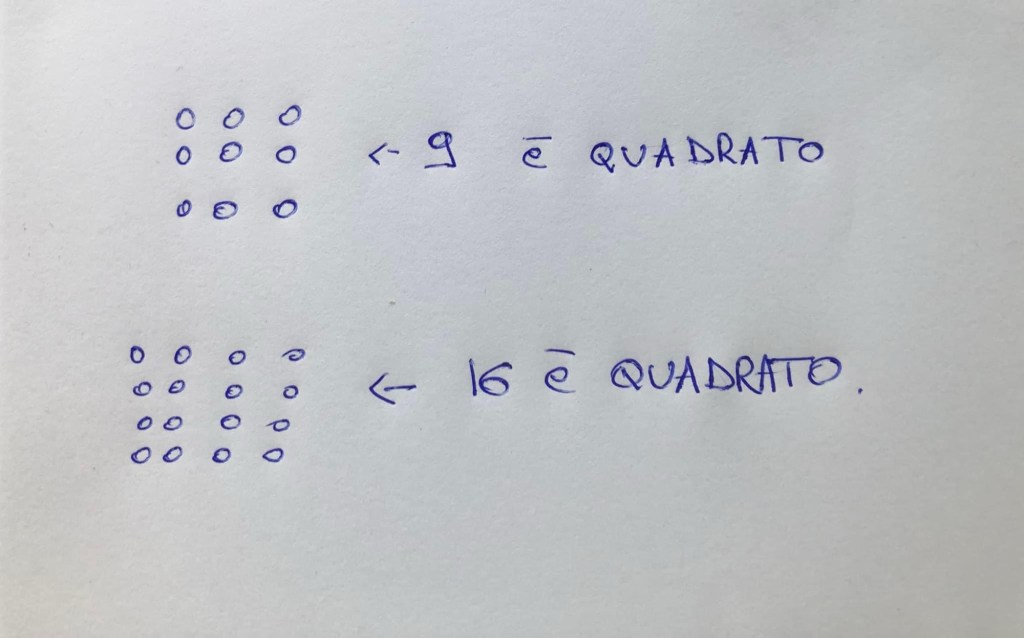 ← 9 è QUADRATO
← 16 è QUADRATO.